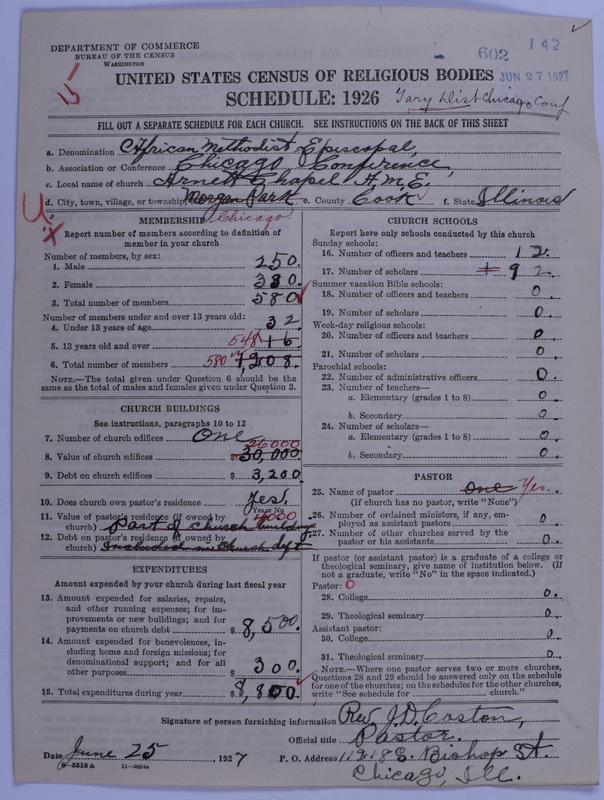 DEPARTMENT OF COMMERCE
BUREAU OF THE CENSUS
WASHINGTON
602
142
JUN 27 1927
15
UNITED STATES CENSUS OF RELIGIOUS BODIES
SCHEDULE: 1926
Gary Dist-Chicago Conf
FILL OUT A SEPARATE SCHEDULE FOR EACH CHURCH. SEE INSTRUCTIONS ON THE BACK OF THIS SHEET
a. Denomination African Methodist Episcopal,
b. Association or Conference Chicago Conference,
c. Local name of church Arnett Chapel A.M.E.
d. City, town, village, or township Morgan Park e. County Cook f. State Illinois
Chicago.
MEMBERSHIP
Report number of members according to definition of
member in your church
Number of members, by sex:
1. Male 250.
2. Female 330.
3. Total number of members 580
Number of members under and over 13 years old:
4. Under 13 years of age 32
5. 13 years old and over 548 16
6. Total number of members 580 1,208.
NOTE.—The total given under Question 6 should be the
same as the total of males and females given under Question 3.
CHURCH BUILDINGS
See instructions, paragraphs 10 to 12
7. Number of church edifices One
26000
8. Value of church edifices $30,000
9. Debt on church edifices $3,200
10. Does church own pastor's residence Yes.
Yes or No
11. Value of pastor's residence (if owned by 4000
church) Part of church building
12. Debt on pastor's residence (if owned by
church) Included in church debt
EXPENDITURES
Amount expended by your church during last fiscal year
13. Amount expended for salaries, repairs,
and other running expenses; for im-
provements or new buildings; and for
payments on church debt $8,500.
14. Amount expended for benevolences, in-
cluding home and foreign missions; for
denominational support; and for all
other purposes 300.
15. Total expenditures during year $8,800.
CHURCH SCHOOLS
Report here only schools conducted by this church
Sunday schools:
16. Number of officers and teachers 12.
17. Number of scholars 1 92
Summer vacation Bible schools:
18. Number of officers and teachers 0
19. Number of scholars 0
Week-day religious schools:
20. Number of officers and teachers 0
21. Number of scholars 0
Parochial schools:
22. Number of administrative officers 0.
23. Number of teachers—
a. Elementary (grades 1 to 8) 0
b. Secondary 0
24. Number of scholars—
a. Elementary (grades 1 to 8) 0
b. Secondary 0
PASTOR
25. Name of pastor One Yes.
(If church has no pastor, write "None")
26. Number of ordained ministers, if any, em-
ployed as assistant pastors 0
27. Number of other churches served by the
pastor or his assistants 0
If pastor (or assistant pastor) is a graduate of a college or
theological seminary, give name of institution below. (If
not a graduate, write "No" in the space indicated.)
Pastor: 0
28. College 0.
29. Theological seminary 0.
Assistant pastor:
30. College 0.
31. Theological seminary 0.
NOTE.—Where one pastor serves two or more churches,
Questions 28 and 29 should be answered only on the schedule
for one of the churches; on the schedules for the other churches,
write "See schedule for church."
Signature of person furnishing information Rev. J.D. Coston,
Official title Pastor.
Date June 25, 1927 P. O. Address 11218 S. Bishop St.
8-5518a 11-9664a
Chicago, Ill.